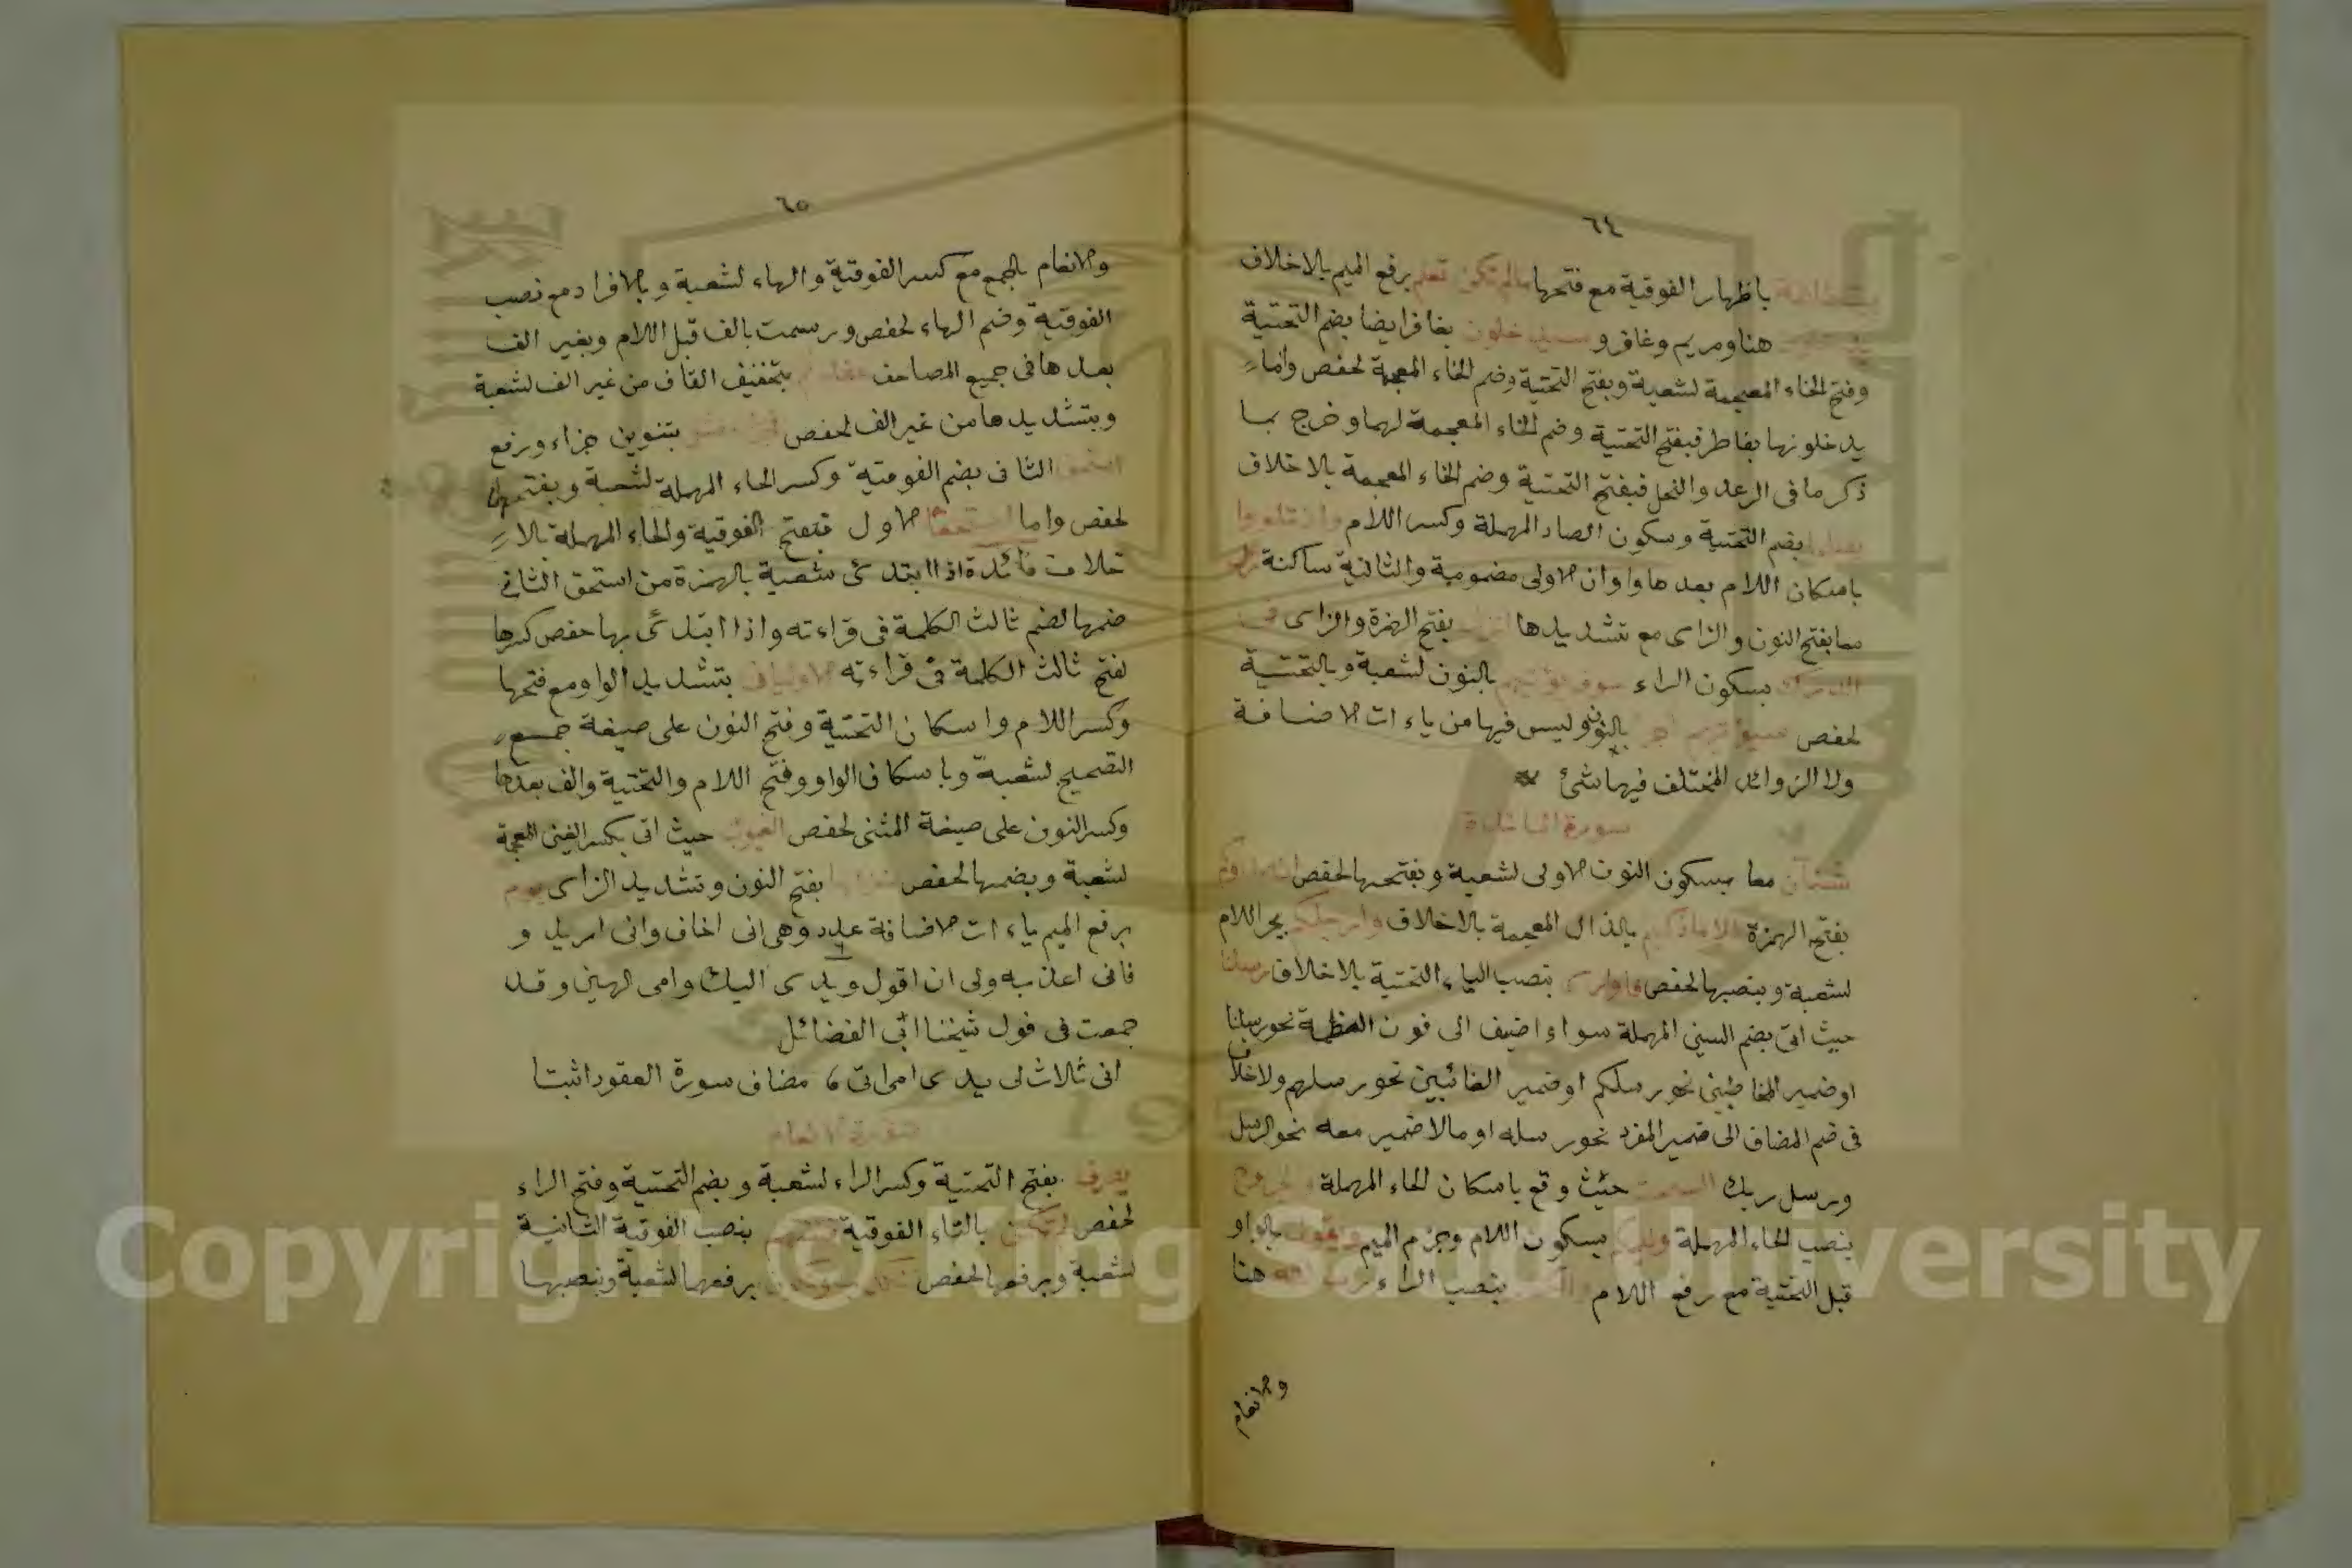 ٦٤
باظهار الفوقية مع فتحها مالم تكن تعلم برفع الميم بالاخلاف
هنا ومريم وغافر و سيدخلون بغافر ايضا بضم التحتية
وفتح الخاء المعجمة لشعبة وبفتح التحتية وضم الخاء المعجمة لحفص واما
يدخلونها بفاطر فبفتح التحتية وضم الخاء المعجمة لهما وخرج بما
ذكر ما فى الرعد والنحل فبفتح التحتية وضم الخاء المعجمة بالاخلاف
بضم التحتية وسكون الصاد المهملة وكسر اللام وان تلووا
باسكان اللام بعدها واوان الاولى مضمومة والثانية ساكنة نزل
معا بفتح النون والزاى مع تشديدها انزل بفتح الهمزة والزاى فى
الدرك بسكون الراء سوف يؤتيهم بالنون لشعبة وبالتحتية
لحفص سنؤتيهم اجرا بالنون وليس فيها من ياءات الاضافة
ولا الزوائد المختلف فيها شئ
سورة المائدة
شنآن معا بسكون النون الاولى لشعبة وبفتحها لحفص ان صدوكم
بفتح الهمزة الا ماذكيتم بالذال المعجمة بالاخلاف وارجلكم بجر اللام
لشعبة وبنصبها لحفص فاوارى بنصب الياء التحتية بالاخلاف رسلنا
حيث اتى بضم السين المهملة سواء اضيف الى نون العظمة نحو رسلنا
او ضمير المخاطبين نحو رسلكم او ضمير الغائبين نحو رسلهم ولاخلاف
فى ضم المضاف الى ضمير المفرد نحو رسله او مالا ضمير معه نحو الرسل
ورسل ربك السحت حيث وقع باسكان الحاء المهملة والجروح
بنصب الحاء المهملة وليحكم بسكون اللام وجزم الميم ويقول بالواو
قبل التحتية مع رفع اللام والكفار بنصب الراء رسالته هنا
والانعام
٦٥
والانعام بالجمع مع كسر الفوقية والهاء لشعبة وبالافراد مع نصب
الفوقية وضم الهاء لحفص ورسمت بالف قبل اللام وبغير الف
بعدها فى جميع المصاحف عقدتم بتخفيف القاف من غير الف لشعبة
وبتشديدها من غير الف لحفص فجزاء مثل بتنوين جزاء ورفع
استحق الثانى بضم الفوقية وكسر الحاء المهملة لشعبة وبفتحهما
لحفص واما استحقا الاول فبفتح الفوقية والحاء المهملة بالا
خلاف فائدة اذا ابتدئ شعبة بالهمزة من استحق الثانى
ضمها لضم ثالث الكلمة فى قراءته واذا ابتدئ بها حفص كسرها
لفتح ثالث الكلمة فى قراءته الاوليان بتشديد الواو مع فتحها
وكسر اللام واسكان التحتية وفتح النون على صيغة جمع
التصحيح لشعبة وباسكان الواو وفتح اللام والتحتية والف بعدها
وكسر النون على صيغة المثنى لحفص الغيوب حيث اتى بكسر الغين المعجمة
لشعبة وبضمها لحفص منزلها بفتح النون وتشديد الزاى يوم
برفع الميم ياءات الاضافة عدد ٦ وهى انى اخاف وانى اريد و
فانى اعذبه ولى ان اقول ويدى اليك وامى الهين وقد
جمعت فى قول شيخنا ابى الفضائل
انى ثلاث لى يدى امى اتى ، مضاف سورة العقود اثبتا
سورة الانعام
يصرف بفتح التحتية وكسر الراء لشعبة وبضم التحتية وفتح الراء
لحفص لم تكن بالتاء الفوقية فتنتهم بنصب الفوقية الثانية
لشعبة وبرفعها لحفص برفعهما لشعبة وبنصبهما
Copyright © King Saud University